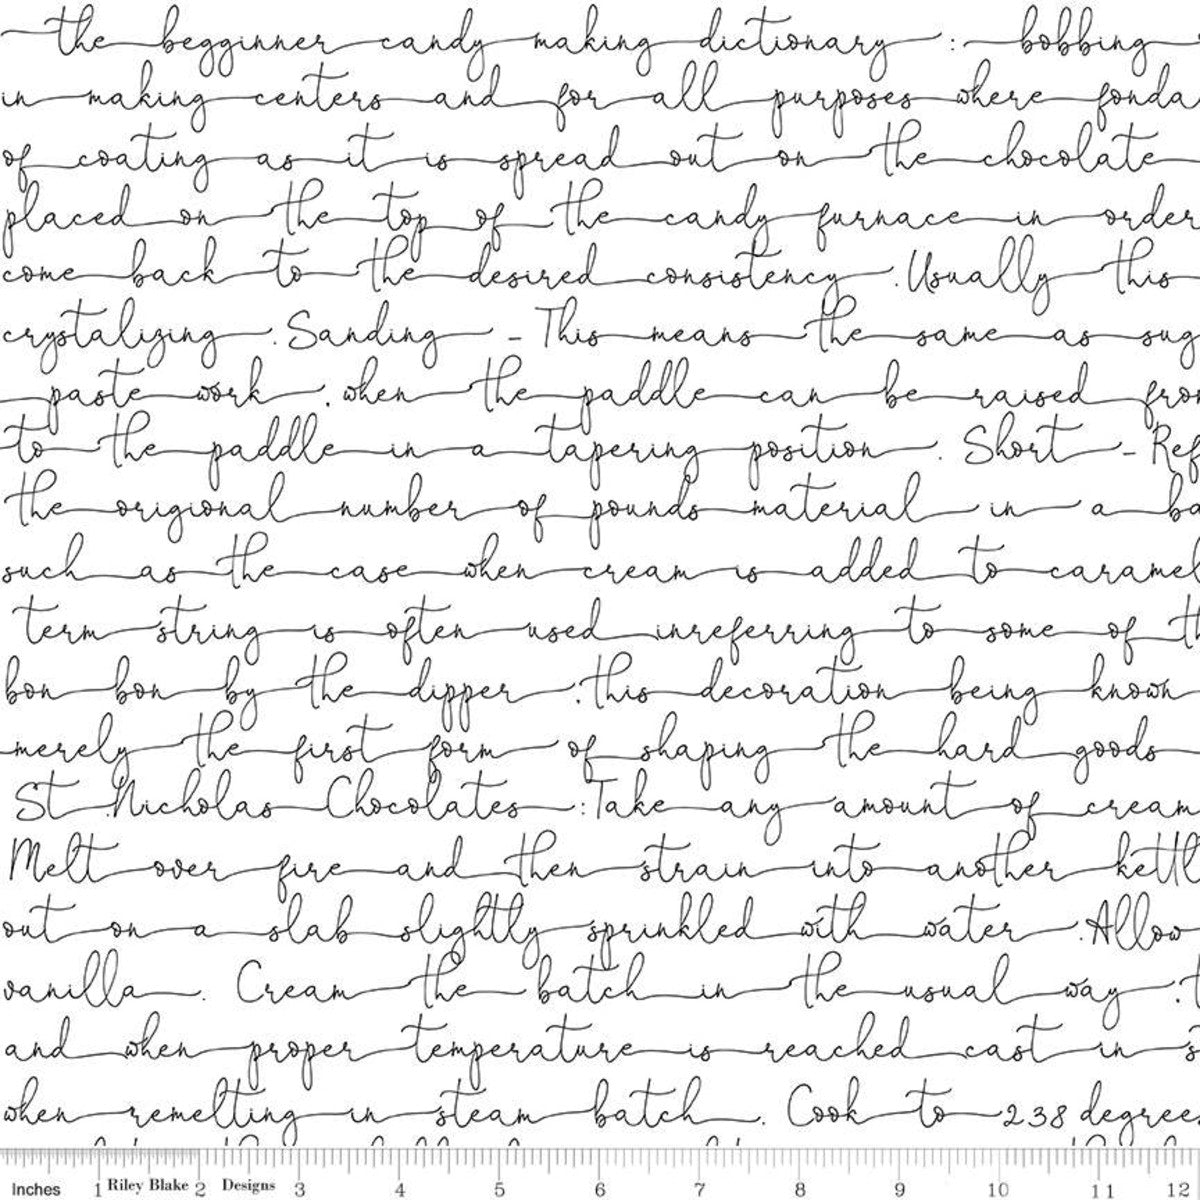 the begginner candy making dictionary : bobbing
in making centers and for all purposes where fonda
of coating as it is spread out on the chocolate
placed on the top of the candy furnace in order
come back to the desired consistency . Usually this
crystalizing . Sanding - This means the same as sug
paste work . when the paddle can be raised from
to the paddle in a tapering position . Short - Ref
the origional number of pounds material in a ba
such as the case when cream is added to caramel
term string is often used inreferring to some of th
bon bon by the dipper . this decoration being known
merely the first form of shaping the hard goods
St .Nicholas Chocolates : Take any amount of cream
Melt over fire and then strain into another kettl
out on a slab slightly sprinkled with water . Allow
vanilla . Cream the batch in the usual way . t
and when proper temperature is reached cast in s
when remelting in steam batch . Cook to 238 degrees
Inches 1 Riley Blake 2 Designs 3 4 5 6 7 8 9 10 11 12